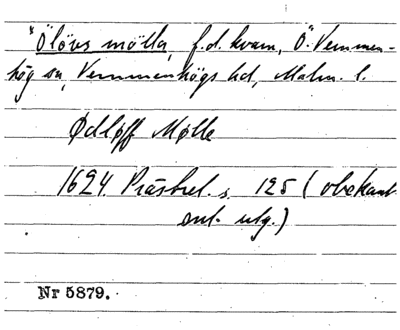 *Ölövs mölla, f.d. kvarn, Ö. Vemmen-
hög sn, Vemmenhögs hd, Malm. l.
Ødløff Mølle
1624 Prästrel. s. 125 (obekant
enl. utg.)
Nr 5879.